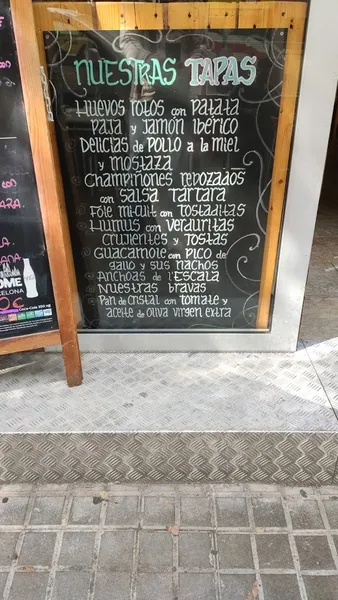 NUESTRAS TAPAS
HUEVOS ROTOS CON PATATA
PAJA Y JAMÓN IBÉRICO
DELICIAS DE POLLO A LA MIEL
Y MOSTAZA
CHAMPIÑONES REBOZADOS
CON SALSA TARTARA
FOIE MICUIT CON TOSTADITAS
HUMUS CON VERDURITAS
CRUJIENTES Y TOSTAS
GUACAMOLE CON PICO DE
GALLO Y SUS NACHOS
ANCHOAS DE L'ESCALA
NUESTRAS BRAVAS
PAN DE CRISTAL CON TOMATE Y
ACEITE DE OLIVA VIRGEN EXTRA
CON
ARA
LA
ANA
OME
CELONA
0€